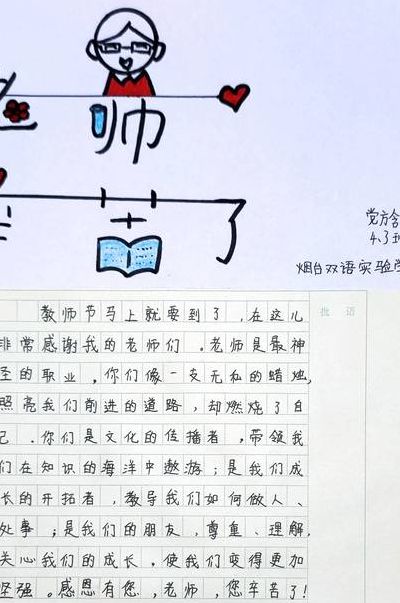 师
苦了
4.3班
烟台双语实验学
批 语
教师节马上就要到了,在这儿
非常感谢我的老师们。老师是最神
圣的职业,你们像一支无私的蜡烛,
照亮我们前进的道路,却燃烧了自
己.你们是文化的传播者,带领我
们在知识的海洋中遨游;是我们成
长的开拓者,教导我们如何做人、
处事;是我们的朋友,尊重、理解,
关心我们的成长,使我们变得更加
坚强。感恩有您,老师,您辛苦了!